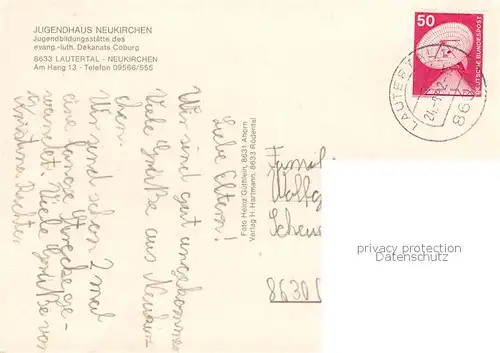 JUGENDHAUS NEUKIRCHEN
Jugendbildungsstätte des
evang.-luth. Dekanats Coburg
8633 LAUTERTAL - NEUKIRCHEN
Am Hang 13 - Telefon 09566/555
50
DEUTSCHE BUNDESPOST
LAUTERT
863
Liebe Eltern!
Wir sind gut angekommen
Viele Grüße aus Neukir-
chen.
Wir sind schon 2 mal
eine lange Strecke ge-
wandert. Viele Grüße von
Foto Heinz Güthlein, 8631 Ahorn
Verlag H. Hartmann, 8633 Rödental
Famil
Wolfg
Scheu
8630
privacy protection
Datenschutz